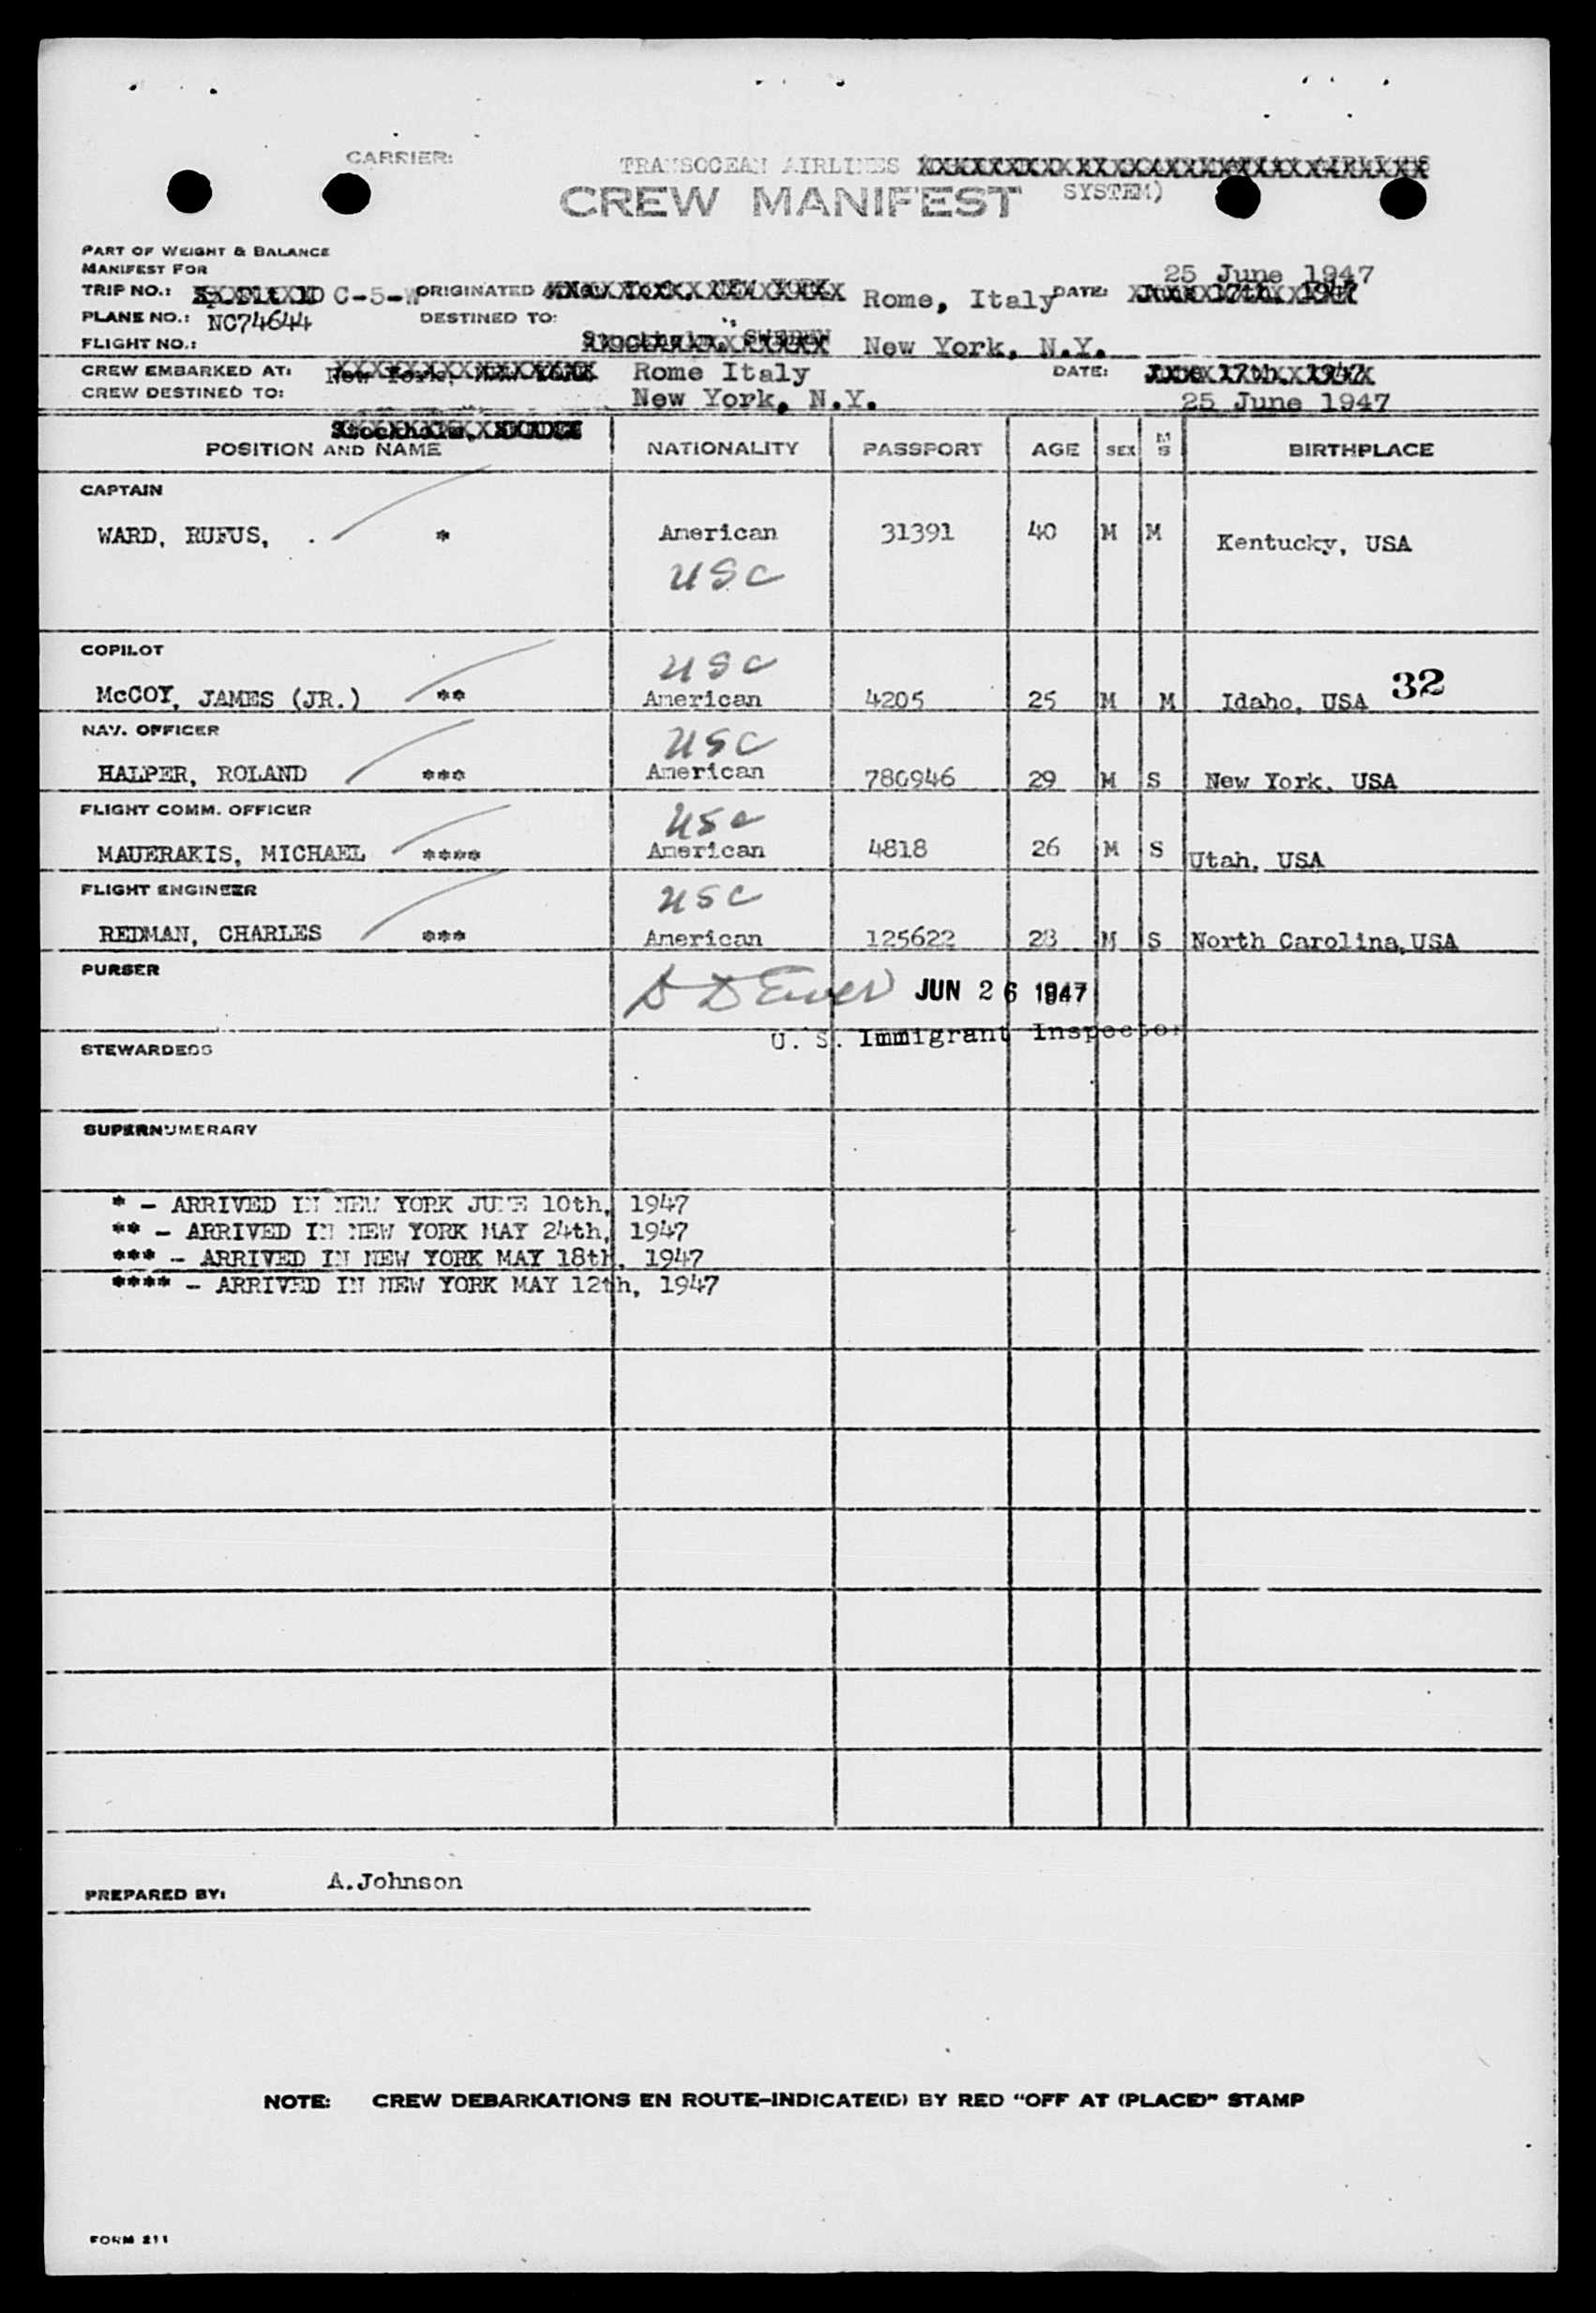 CARRIER: TRANSOCEAN AIRLINES
CREW MANIFEST SYSTEM)
PART OF WEIGHT & BALANCE
MANIFEST FOR 25 June 1947
TRIP NO.: C-5-W ORIGINATED Rome, Italy DATE: June 17th, 1947
PLANE NO.: NC74644 DESTINED TO:
FLIGHT NO.: Stockholm, SWEDEN New York, N.Y.
CREW EMBARKED AT: New York, New York Rome Italy DATE: June 17th, 1947
CREW DESTINED TO: New York, N.Y. 25 June 1947
Stockholm,
POSITION AND NAME NATIONALITY PASSPORT AGE SEX M S BIRTHPLACE
CAPTAIN
WARD, RUFUS, . * American 31391 40 M M Kentucky, USA
USC
COPILOT USC
McCOY, JAMES (JR.) ** American 4205 25 M M Idaho, USA 32
NAV. OFFICER USC
HALPER, ROLAND *** American 780946 29 M S New York, USA
FLIGHT COMM. OFFICER USC
MAUERAKIS, MICHAEL **** American 4818 26 M S Utah, USA
FLIGHT ENGINEER USC
REDMAN, CHARLES *** American 125622 28 M S North Carolina, USA
PURSER JUN 26 1947
U. S. Immigrant Inspector
STEWARDESS
SUPERNUMERARY
* - ARRIVED IN NEW YORK JUNE 10th, 1947
** - ARRIVED IN NEW YORK MAY 24th, 1947
*** - ARRIVED IN NEW YORK MAY 18th, 1947
**** - ARRIVED IN NEW YORK MAY 12th, 1947
PREPARED BY: A.Johnson
NOTE: CREW DEBARKATIONS EN ROUTE-INDICATE(D) BY RED "OFF AT (PLACE)" STAMP
FORM 211